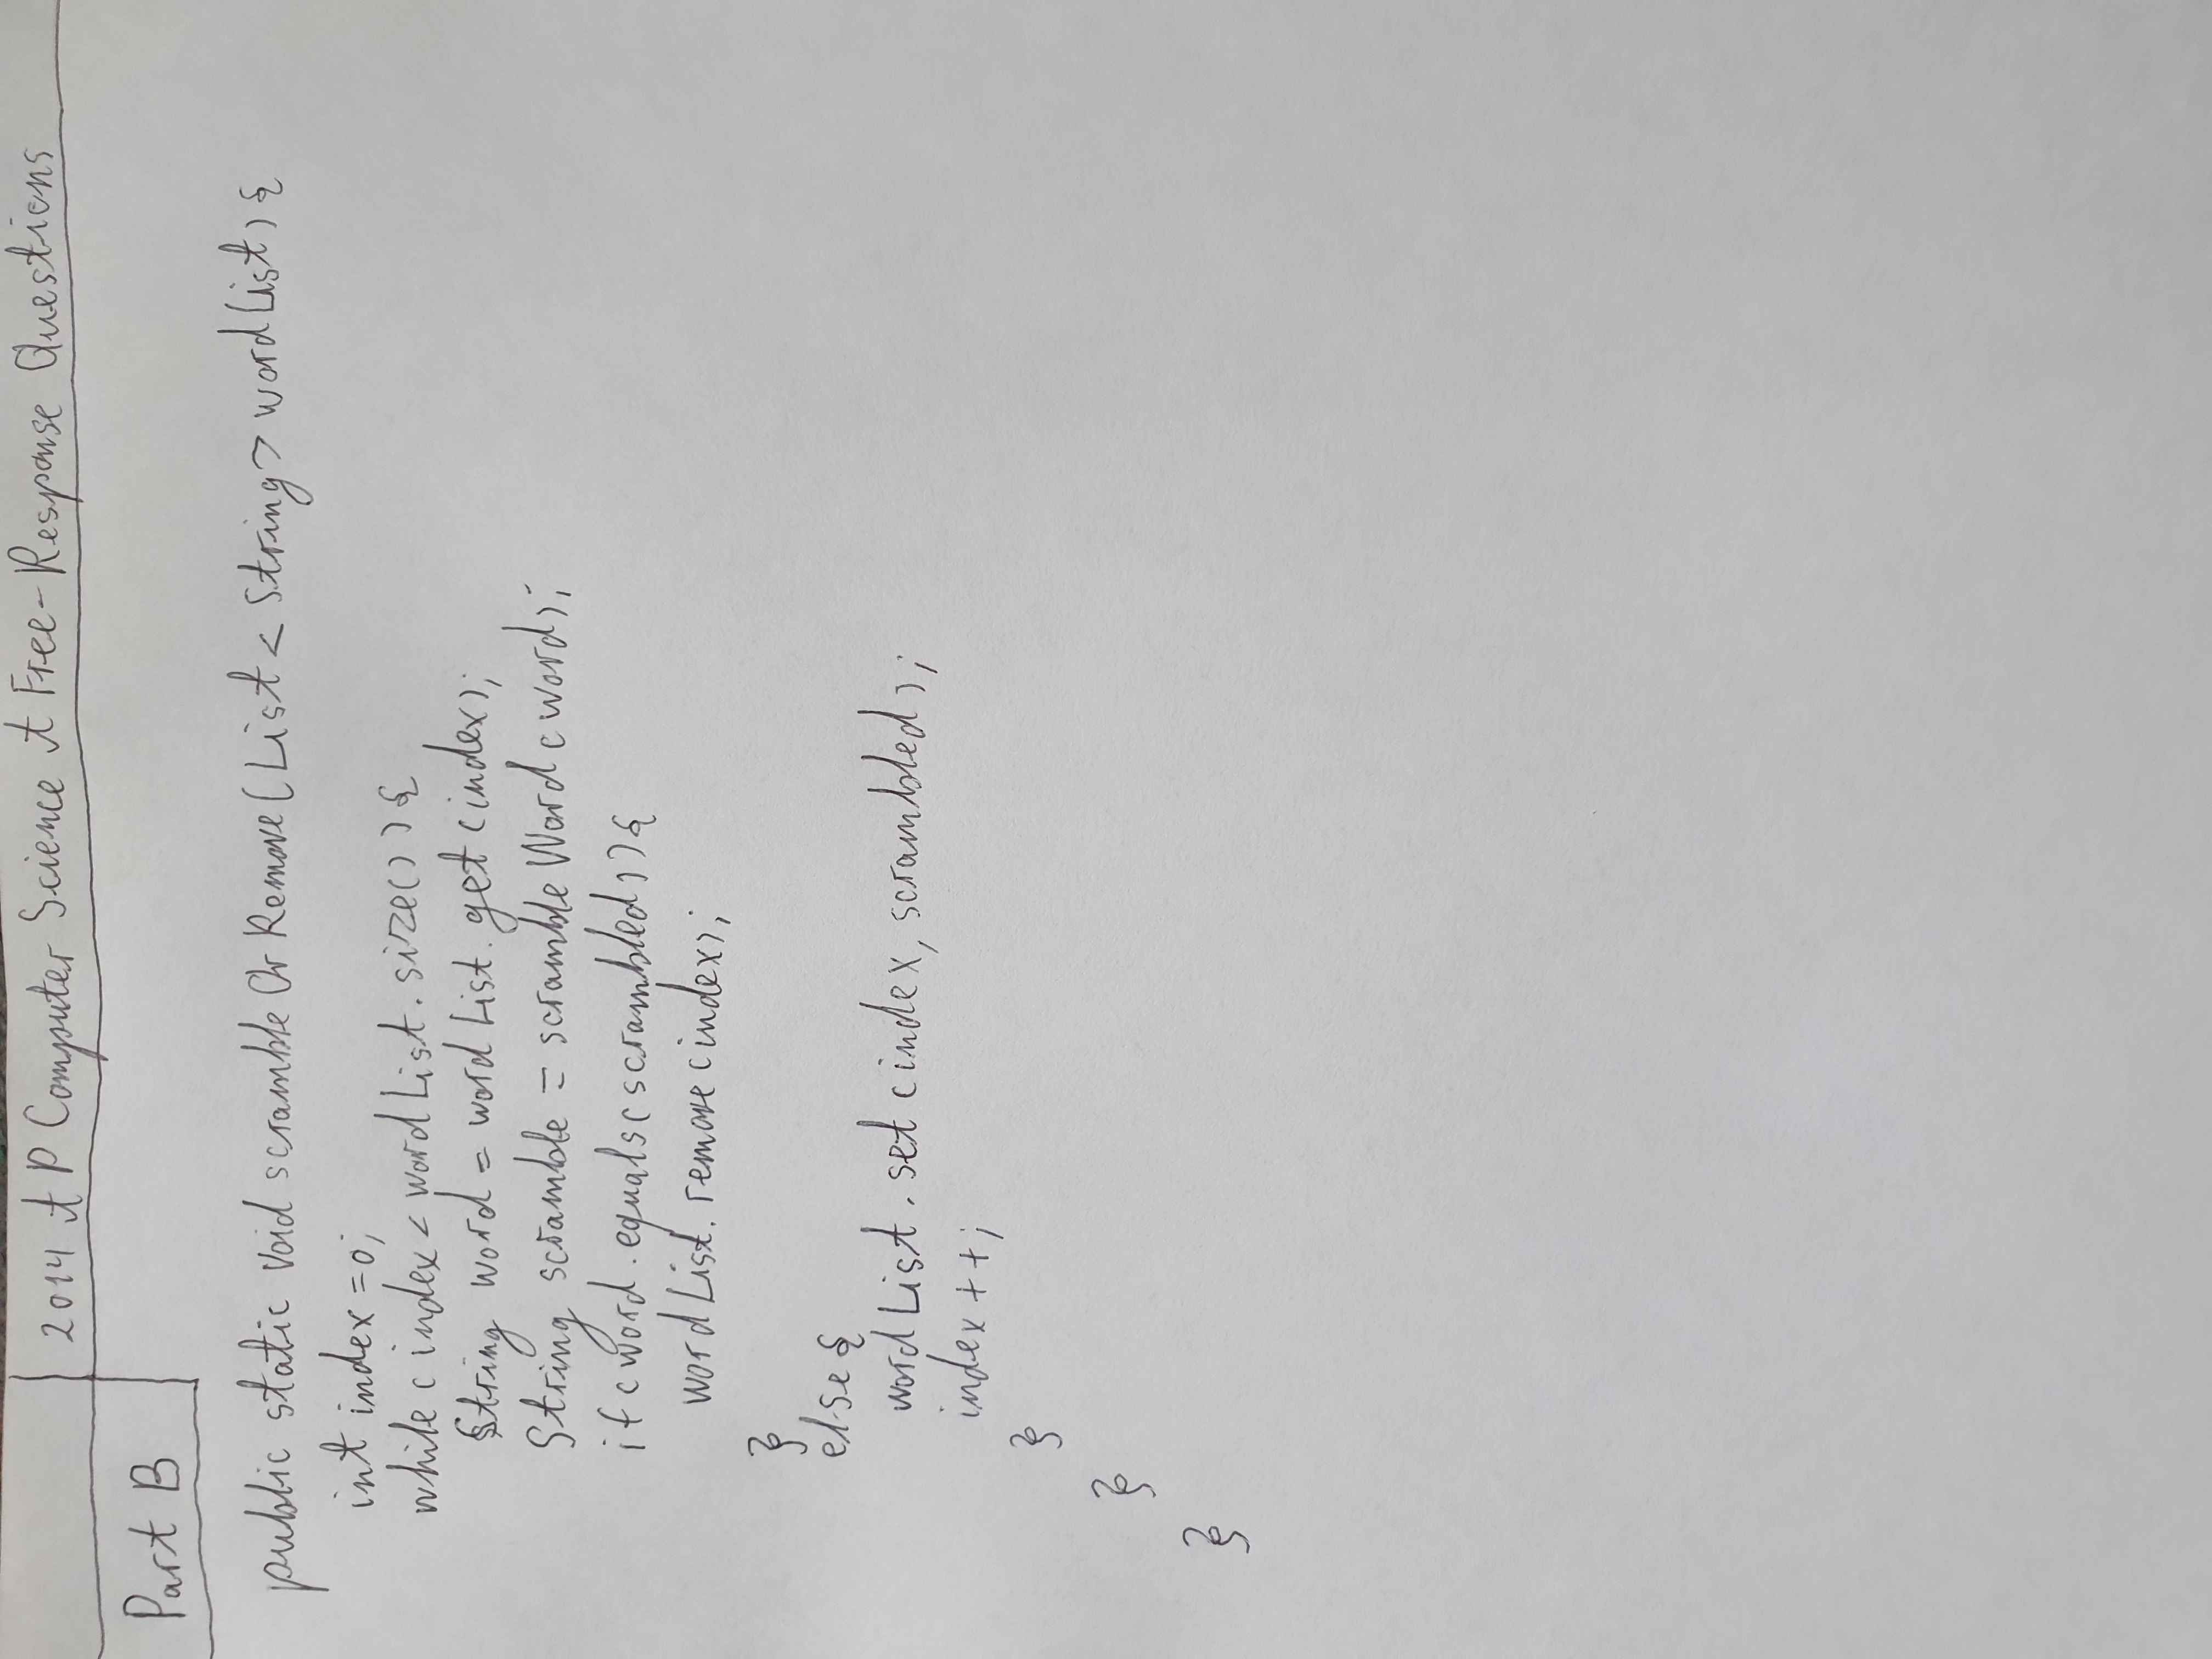 2014 AP Computer Science A Free-Response Questions
Part B
public static void scrambleOrRemove(List<String> wordList){
int index=0;
while(index<wordList.size()){
String word = wordList.get(index);
String scramble = scrambleWord(word);
if(word.equals(scrambled)){
wordList.remove(index);
}
else{
wordList.set(index, scrambled);
index++;
}
}
}